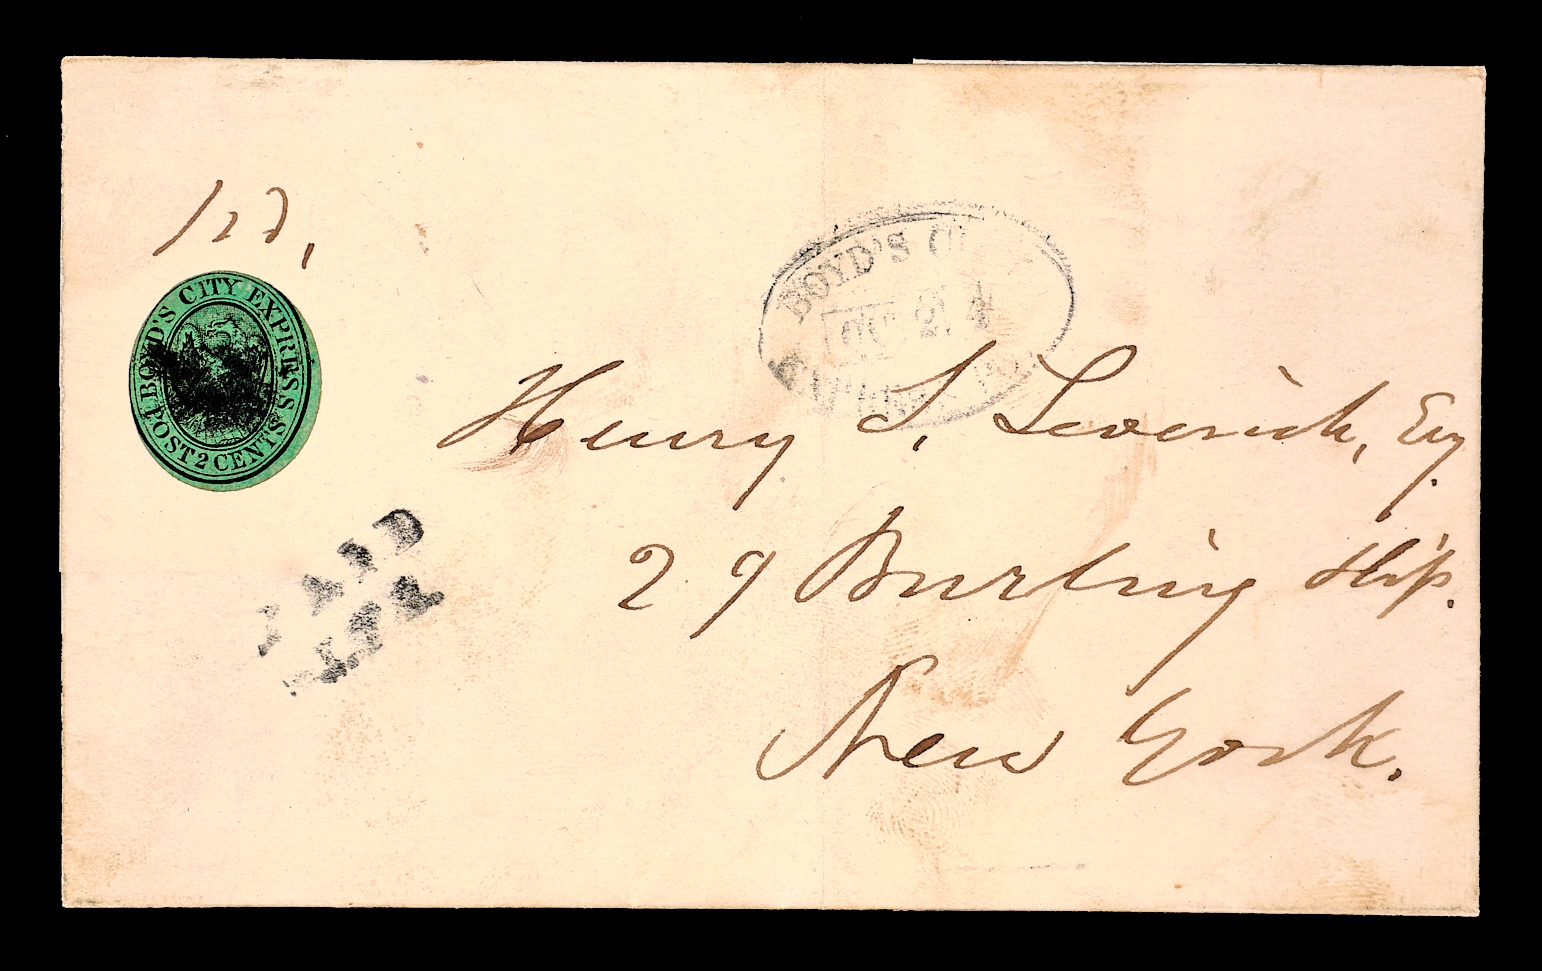 pd,
BOYD'S CITY EXPRESS
POST 2 CENTS
BOYD'S
24
PAID
Henry S. Leverich, Esq.
29 Burling Slip.
New York.